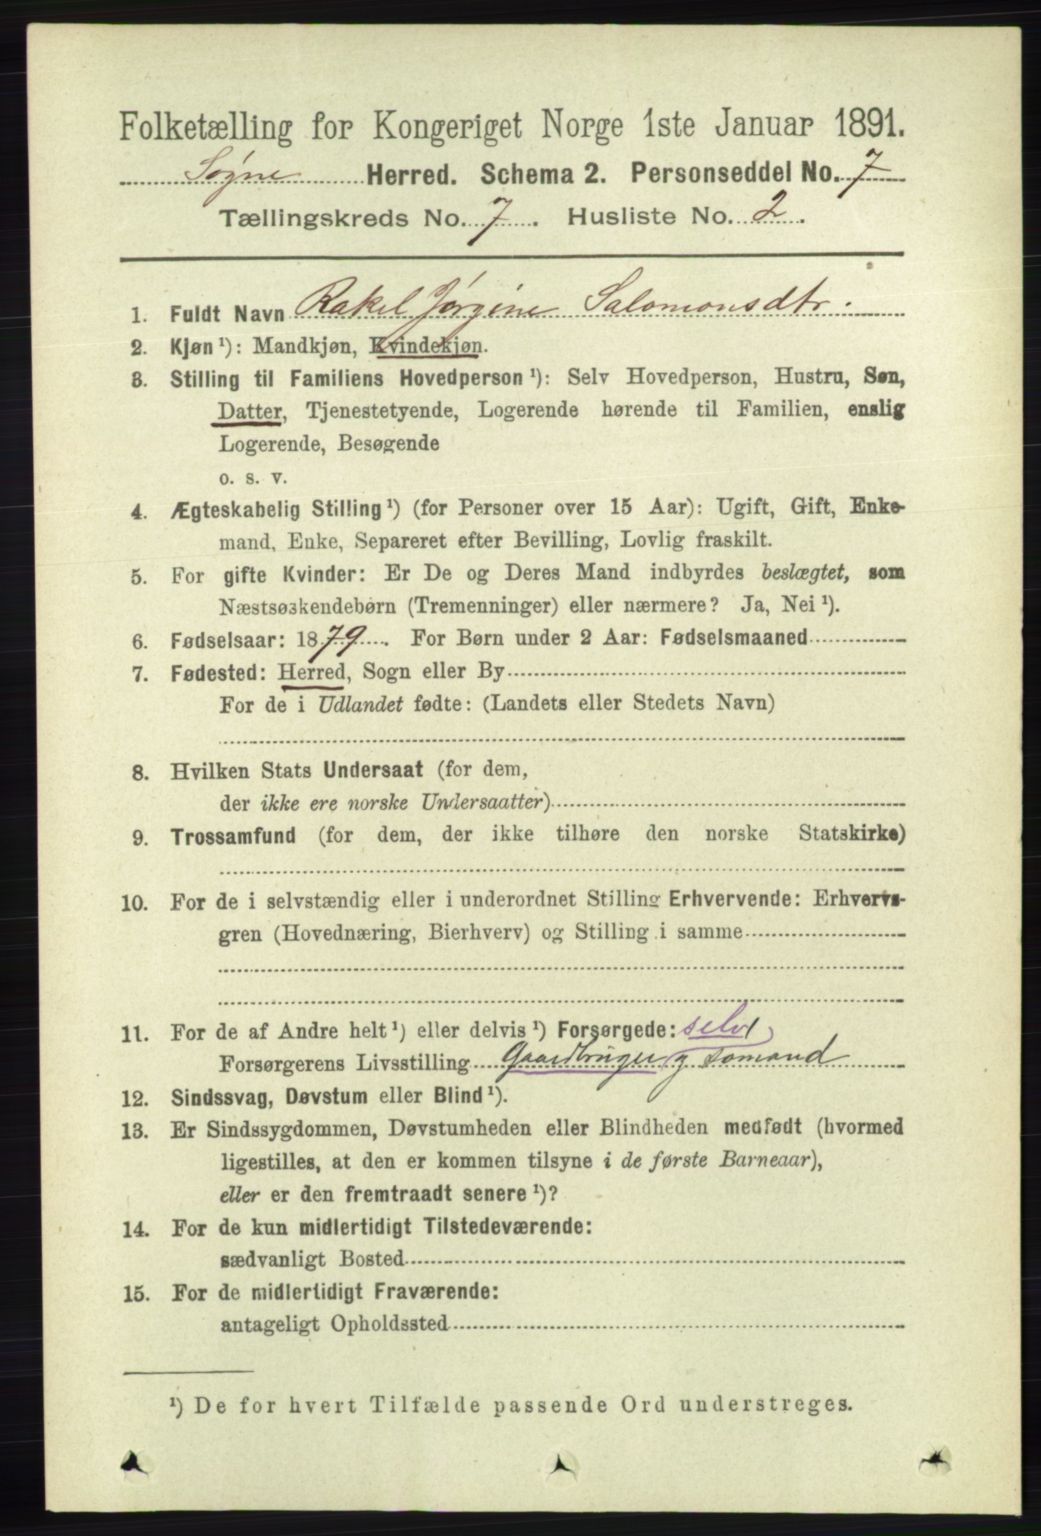 Folketælling for Kongeriget Norge 1ste Januar 1891.
Søgne Herred. Schema 2. Personseddel No. 7
Tællingskreds No. 7. Husliste No. 2.
1. Fuldt Navn Rakel Jørgine Salomonsdtr.
2. Kjøn ¹): Mandkjøn, Kvindekjøn.
3. Stilling til Familiens Hovedperson ¹): Selv Hovedperson, Hustru, Søn,
Datter, Tjenestetyende, Logerende hørende til Familien, enslig
Logerende, Besøgende
o. s. v.
4. Ægteskabelig Stilling ¹) (for Personer over 15 Aar): Ugift, Gift, Enke-
mand, Enke, Separeret efter Bevilling, Lovlig fraskilt.
5. For gifte Kvinder: Er De og Deres Mand indbyrdes beslægtet, som
Næstsøskendebørn (Tremenninger) eller nærmere? Ja, Nei ¹).
6. Fødselsaar: 1879. For Børn under 2 Aar: Fødselsmaaned
7. Fødested: Herred, Sogn eller By
For de i Udlandet fødte: (Landets eller Stedets Navn)
8. Hvilken Stats Undersaat (for dem,
der ikke ere norske Undersaatter)
9. Trossamfund (for dem, der ikke tilhøre den norske Statskirke)
10. For de i selvstændig eller i underordnet Stilling Erhvervende: Erhvervs-
gren (Hovednæring, Bierhverv) og Stilling i samme
11. For de af Andre helt ¹) eller delvis ¹) Forsørgede: selv
Forsørgerens Livsstilling Gaardbruger og Sømand
12. Sindssvag, Døvstum eller Blind ¹).
13. Er Sindssygdommen, Døvstumheden eller Blindheden medfødt (hvormed
ligestilles, at den er kommen tilsyne i de første Barneaar),
eller er den fremtraadt senere ¹)?
14. For de kun midlertidigt Tilstedeværende:
sædvanligt Bosted
15. For de midlertidigt Fraværende:
antageligt Opholdssted
¹) De for hvert Tilfælde passende Ord understreges.